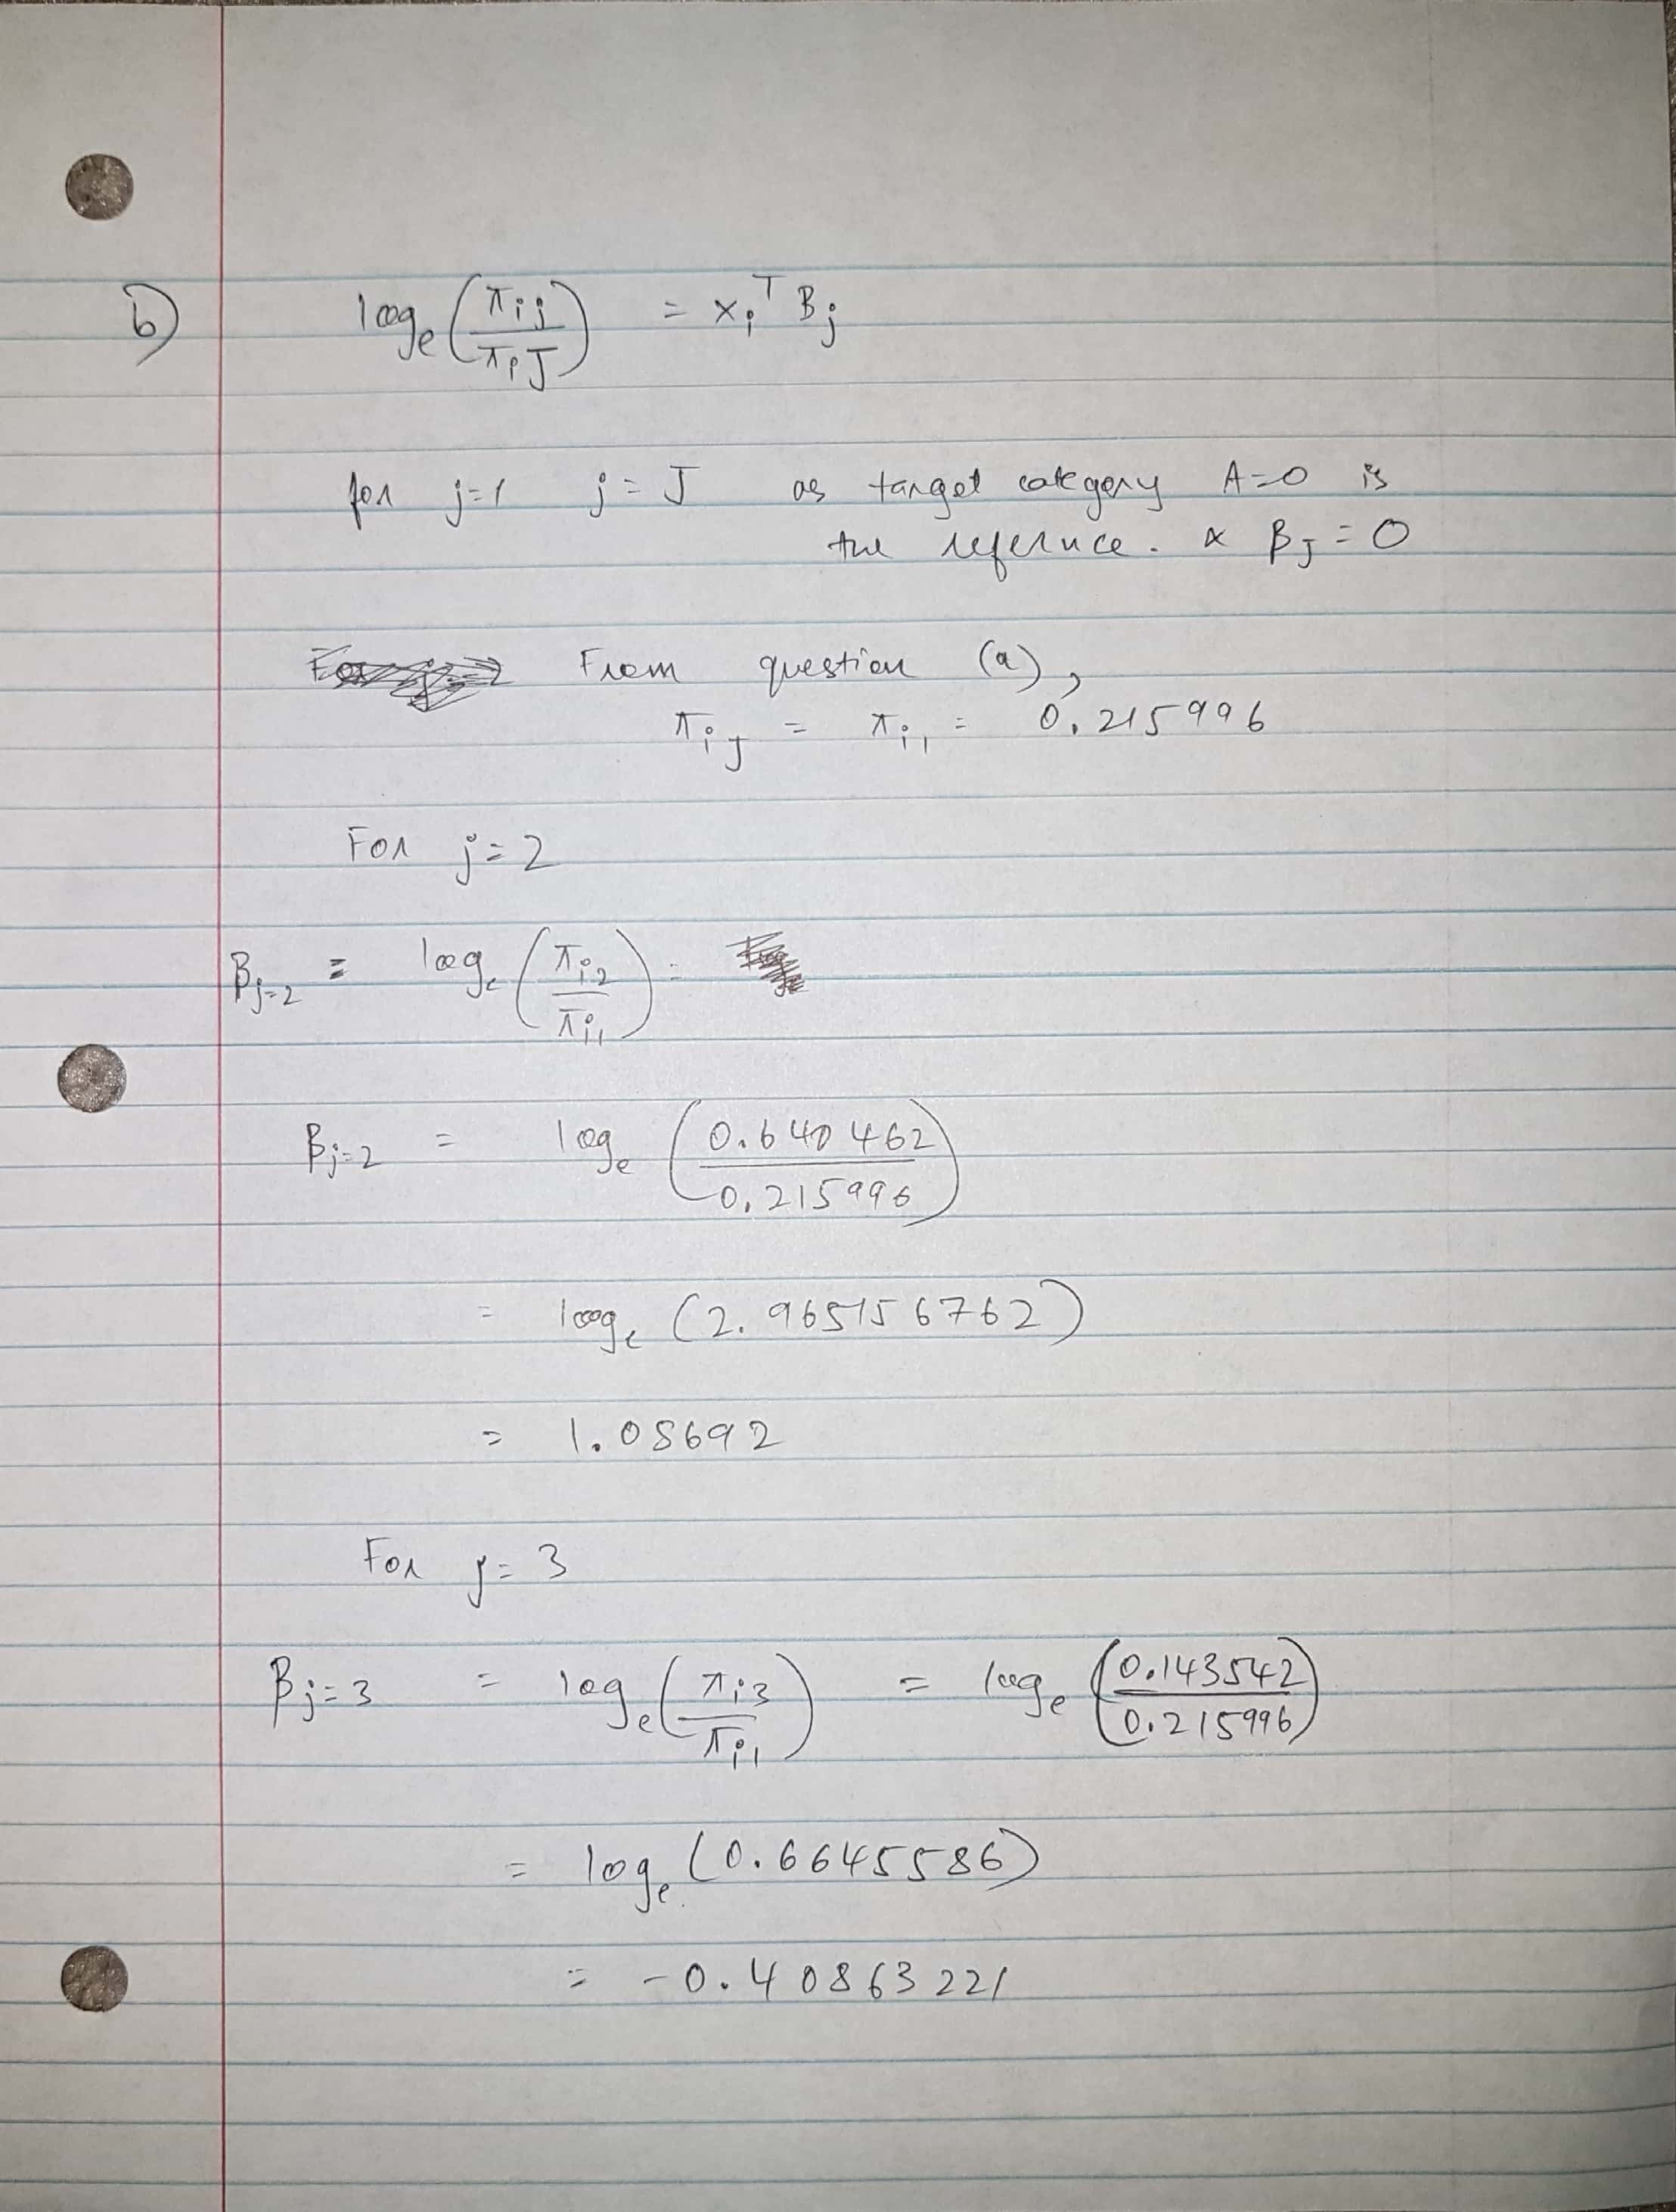 b) logₑ(πij / πiJ) = xiᵀ Bj
for j=1 j=J as target category A=0 is
the reference. & βJ = 0
From question (a),
πiJ = πi1 = 0.215996
For j=2
βj=2 = logₑ(πi2 / πi1) =
βj=2 = logₑ(0.640462 / 0.215996)
= logₑ(2.965156762)
= 1.08692
For j=3
βj=3 = logₑ(πi3 / πi1) = logₑ(0.143542 / 0.215996)
= logₑ(0.6645586)
= -0.40863221